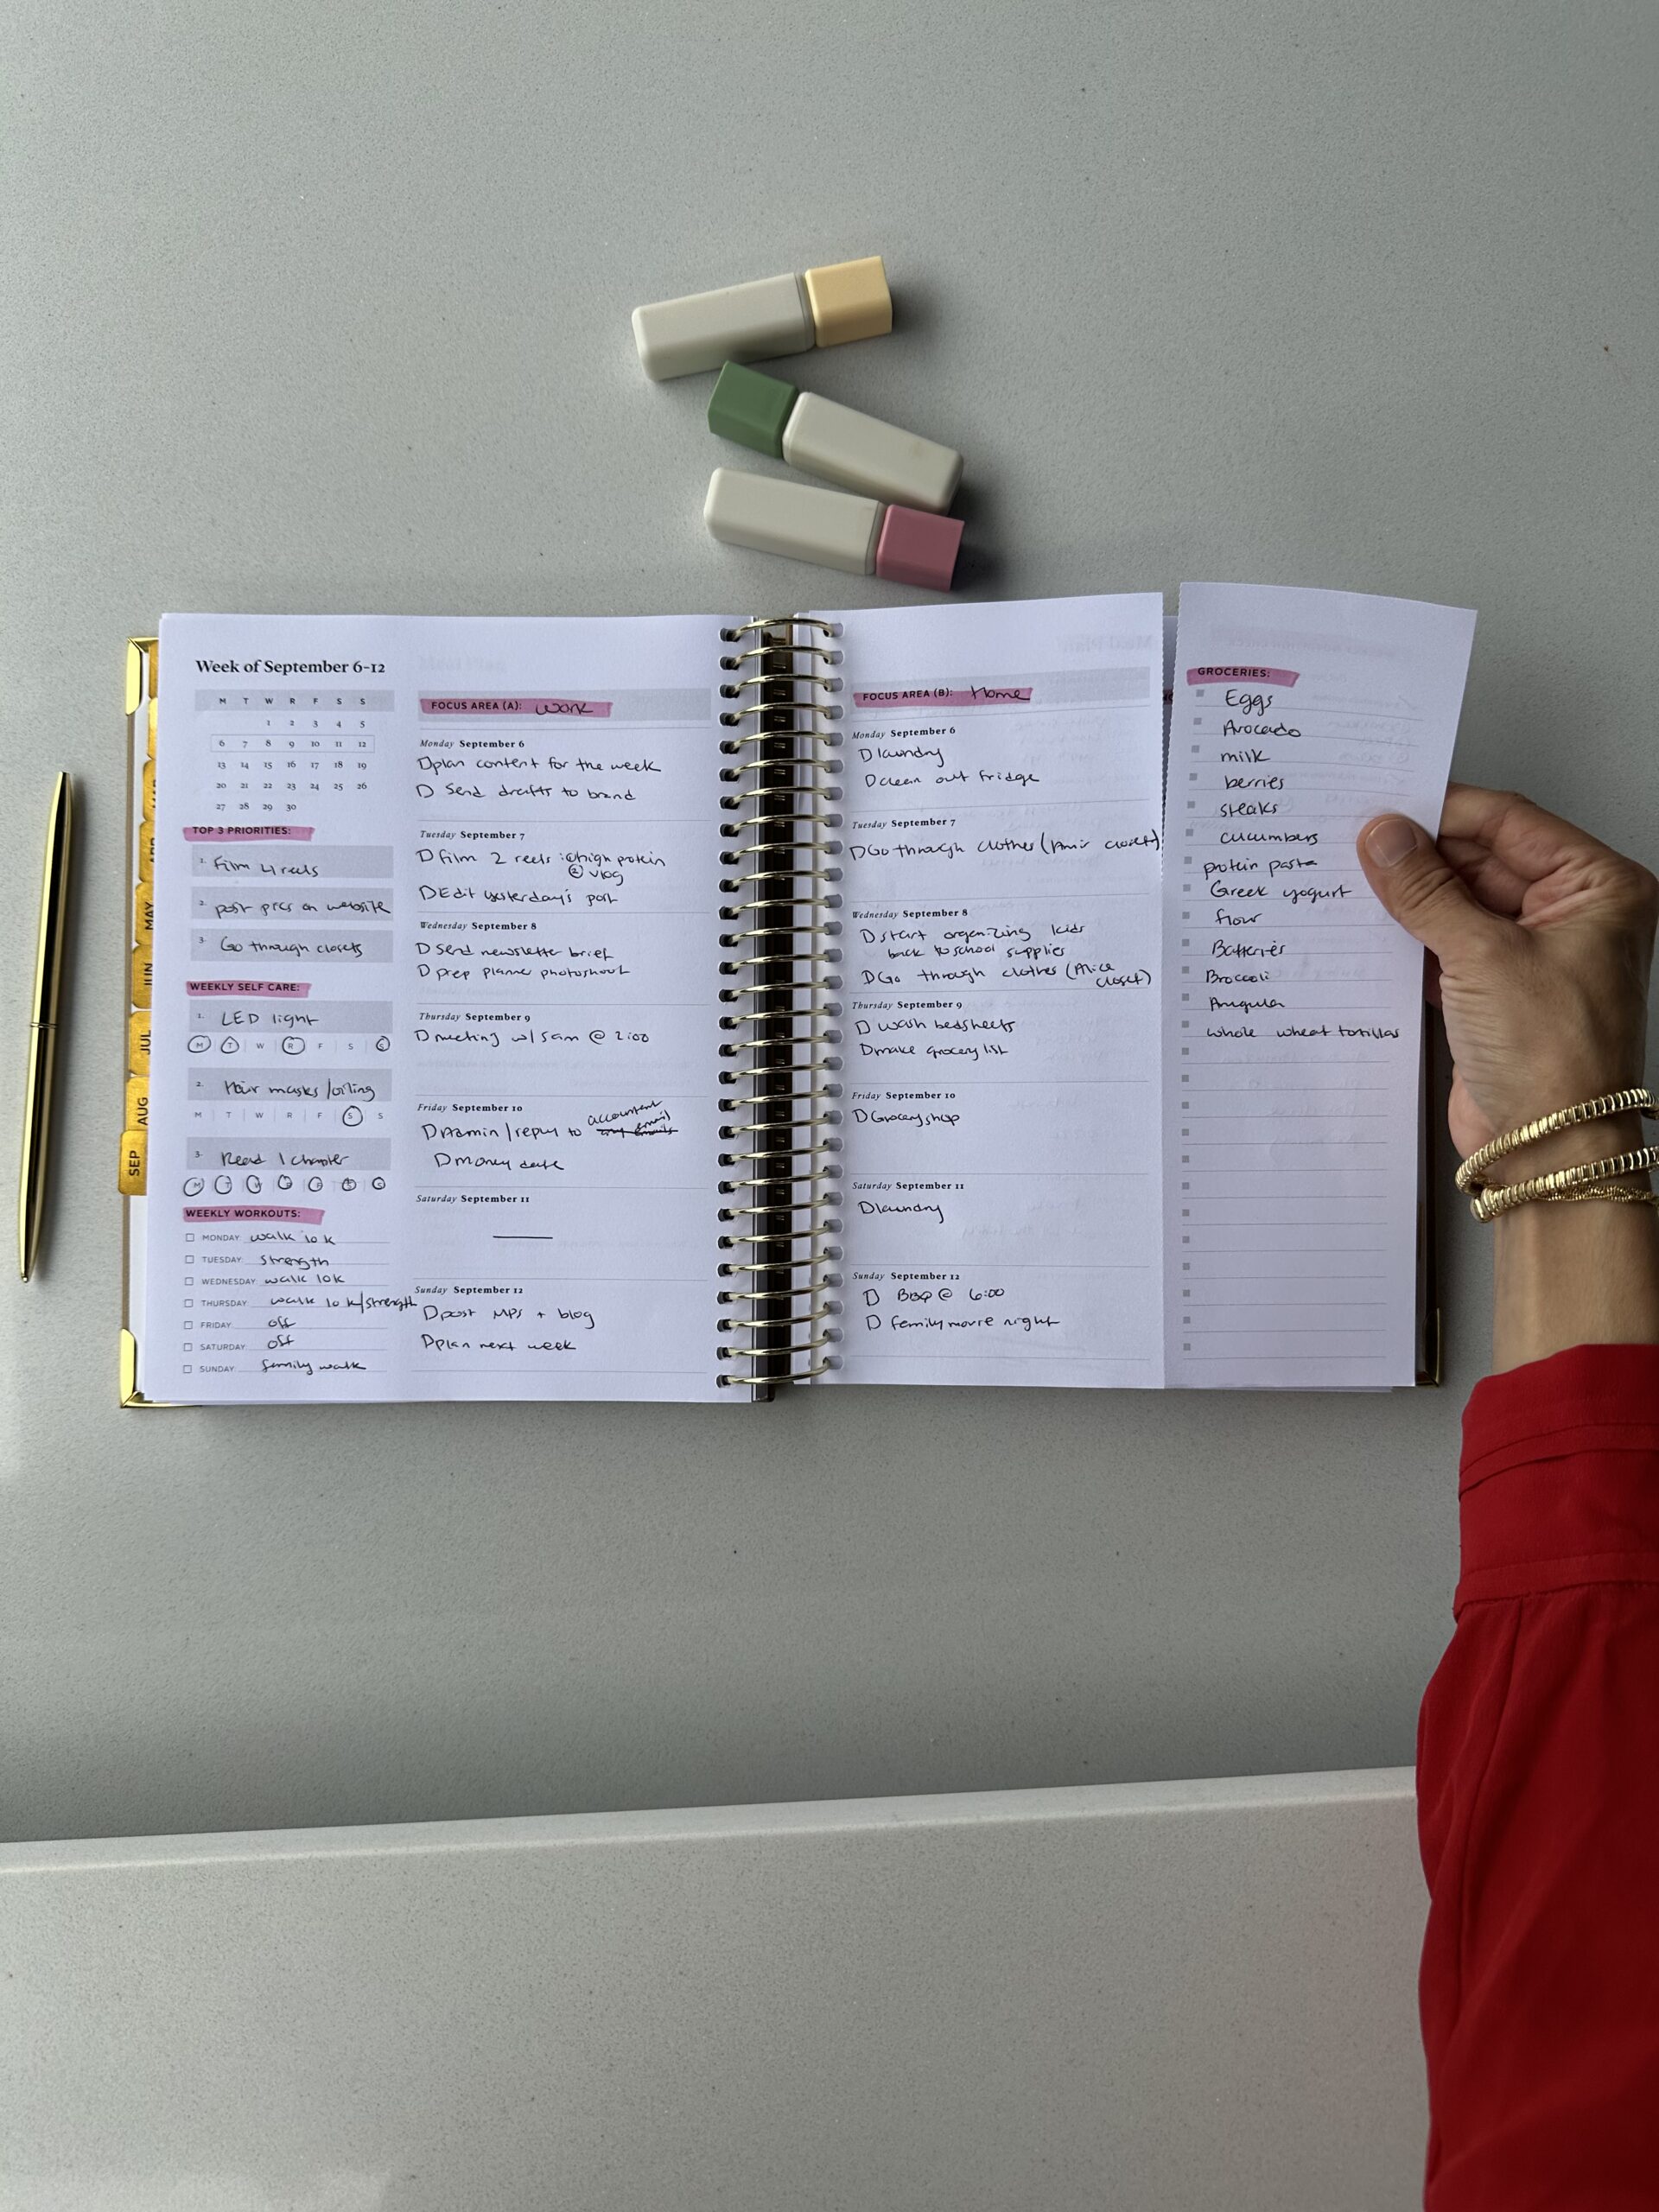 Week of September 6-12
M T W R F S S
1 2 3 4 5
6 7 8 9 10 11 12
13 14 15 16 17 18 19
20 21 22 23 24 25 26
27 28 29 30
TOP 3 PRIORITIES:
1. Film 4 reels
2. post prcs on website
3. Go through closets
WEEKLY SELF CARE:
1. LED light
M T W R F S S
2. Hair masks/oiling
M T W R F S S
3. Read 1 chapter
M T W R F S S
WEEKLY WORKOUTS:
MONDAY: walk 10k
TUESDAY: strength
WEDNESDAY: walk 10k
THURSDAY: walk 10k/strength
FRIDAY: off
SATURDAY: off
SUNDAY: family walk
FOCUS AREA (A): work
Monday September 6
plan content for the week
Send drafts to brand
Tuesday September 7
film 2 reels: ① high protein
② vlog
Edit yesterday's post
Wednesday September 8
Send newsletter brief
prep planner photoshoot
Thursday September 9
meeting w/ Sam @ 2:00
Friday September 10
Admin/reply to accountant email
money date
Saturday September 11
Sunday September 12
post MPS + blog
plan next week
FOCUS AREA (B): Home
Monday September 6
laundry
clean out fridge
Tuesday September 7
Go through clothes (Amir closet)
Wednesday September 8
start organizing kids
back to school supplies
Go through clothes (Alice
closet)
Thursday September 9
wash bedsheets
make grocery list
Friday September 10
Grocery shop
Saturday September 11
laundry
Sunday September 12
BBQ @ 6:00
family movie night
GROCERIES:
Eggs
Avocado
milk
berries
steaks
cucumbers
protein pasta
Greek yogurt
flour
Batteries
Broccoli
Arugula
whole wheat tortillas
MAY
JUN
JUL
AUG
SEP